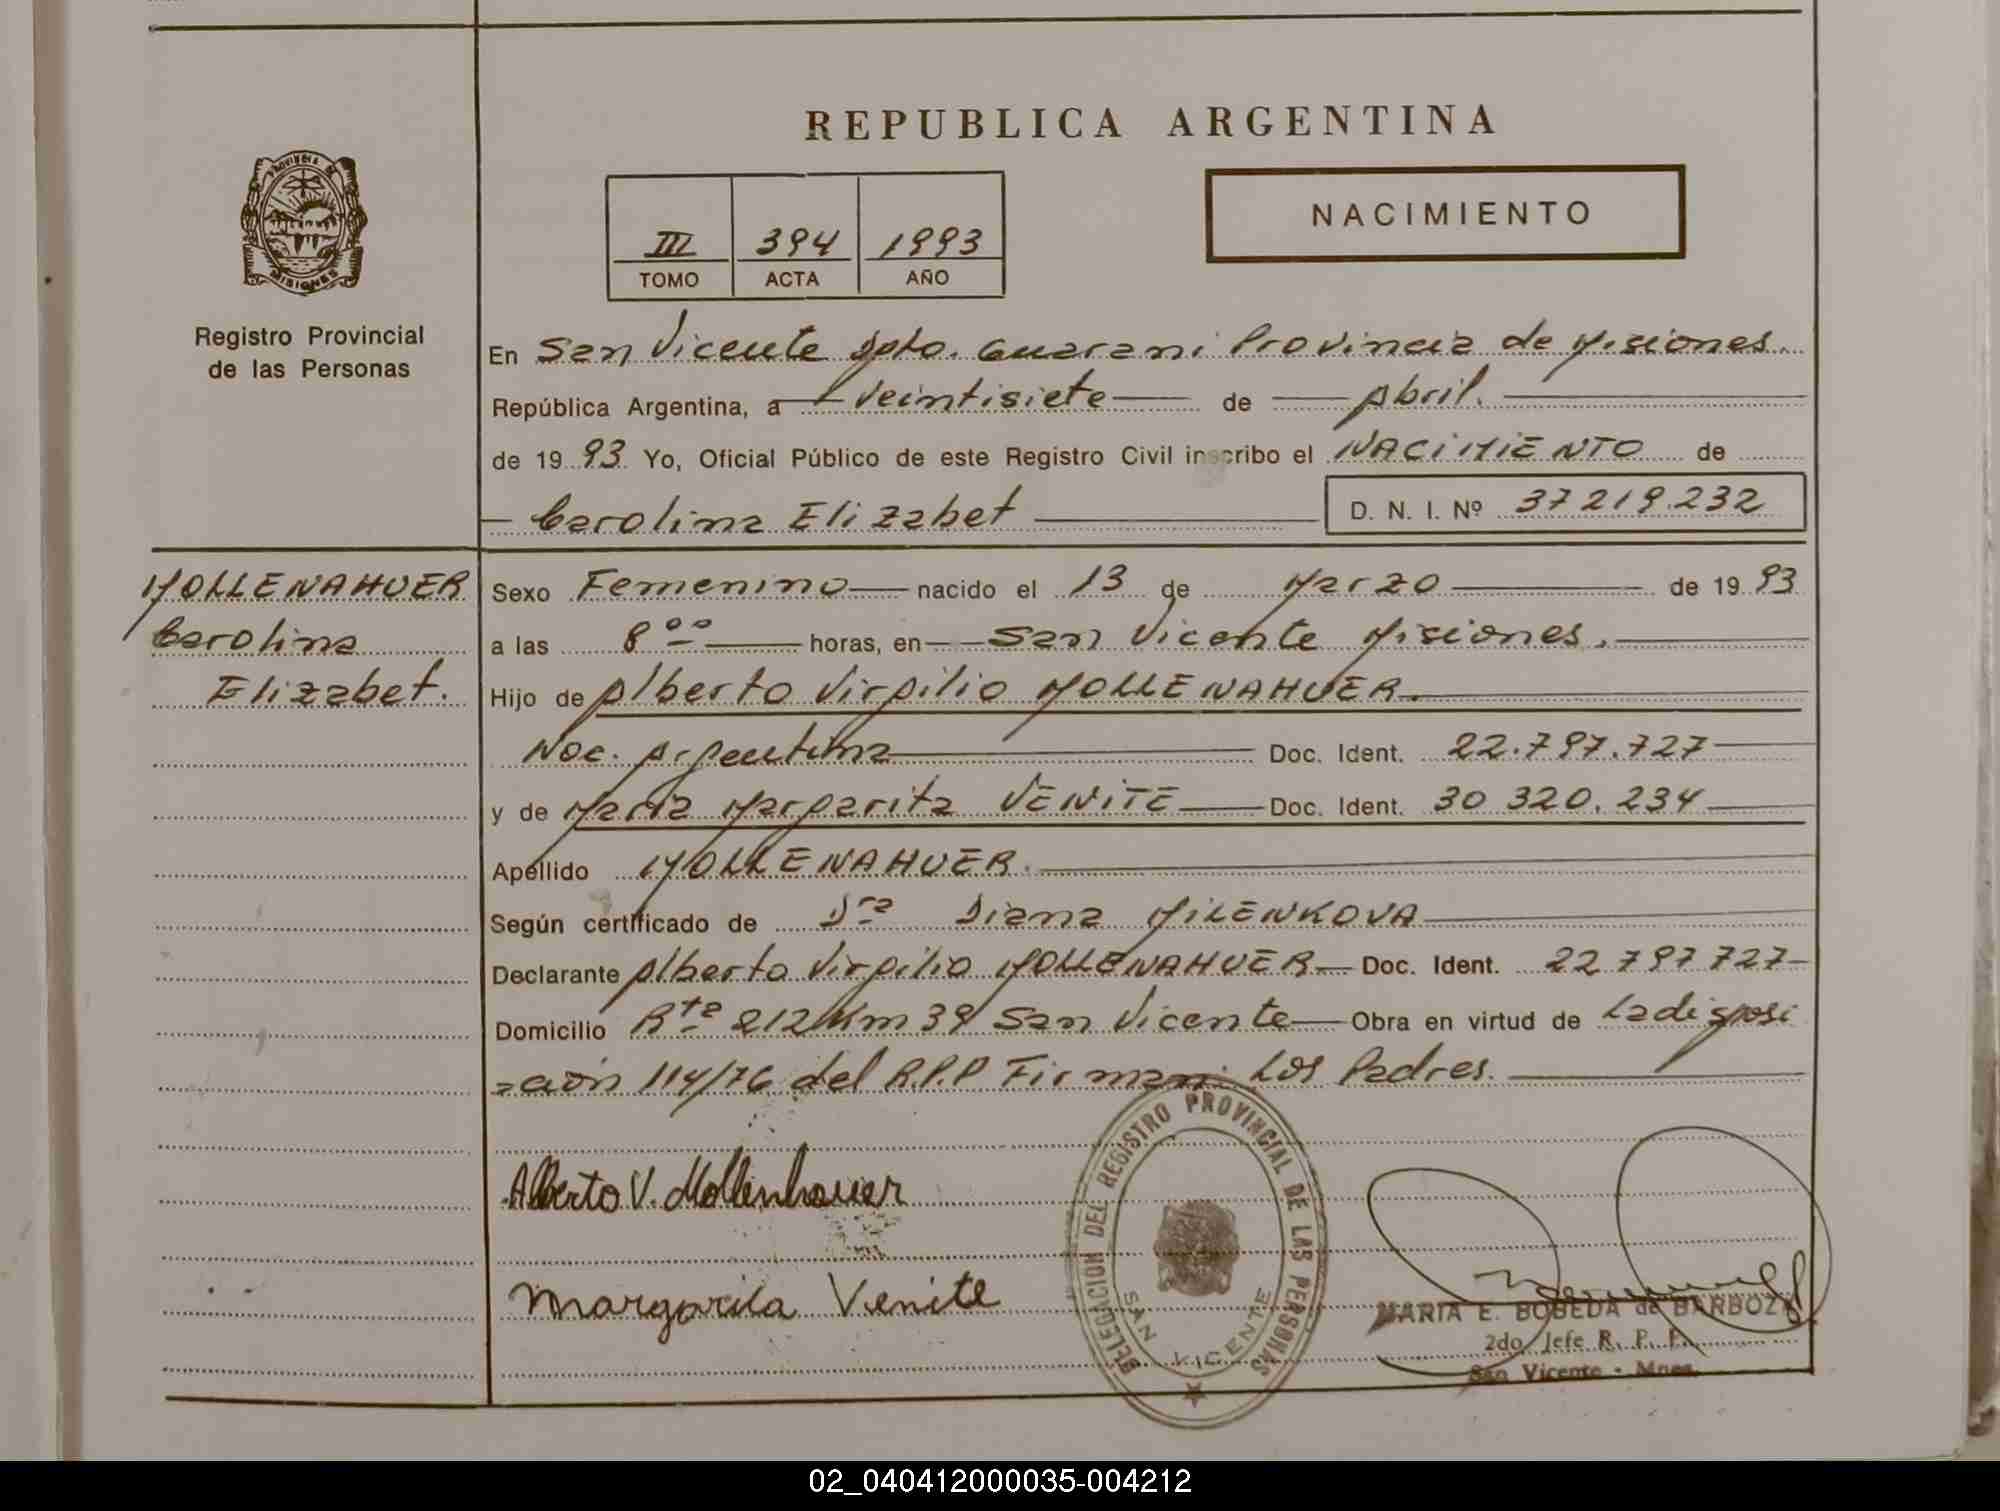 REPUBLICA ARGENTINA
PROVINCIA DE MISIONES
III 394 1993
TOMO ACTA AÑO
NACIMIENTO
Registro Provincial
de las Personas
En San Vicente Dpto. Guarani Provincia de Misiones.
República Argentina, a Veintisiete de Abril.
de 1993 Yo, Oficial Público de este Registro Civil inscribo el NACIMIENTO de
Carolina Elizabet D. N. I. Nº 37 219.232
MOLLENAHUER
Carolina
Elizabet.
Sexo Femenino nacido el 13 de Marzo de 1993
a las 8 00 horas, en San Vicente Misiones.
Hijo de Alberto Virgilio MOLLENAHUER.
Nac. Argentina Doc. Ident. 22.797.727
y de Maria Margarita VENITE Doc. Ident. 30 320.234
Apellido MOLLENAHUER.
Según certificado de Dra Diana MILENKOVA
Declarante Alberto Virgilio MOLLENAHUER Doc. Ident. 22 797 727
Domicilio Rta 212 Km 39 San Vicente Obra en virtud de La disposi
=ción 114/76 del R.P.P Firman: Los Padres.
Alberto V. Mollenhauer
Margarita Venite
DELEGACION DEL REGISTRO PROVINCIAL DE LAS PERSONAS
SAN VICENTE
MARIA E. BOBEDA de BARBOZA
2do. Jefe R. P. P.
San Vicente - Mnes.
02_040412000035-004212